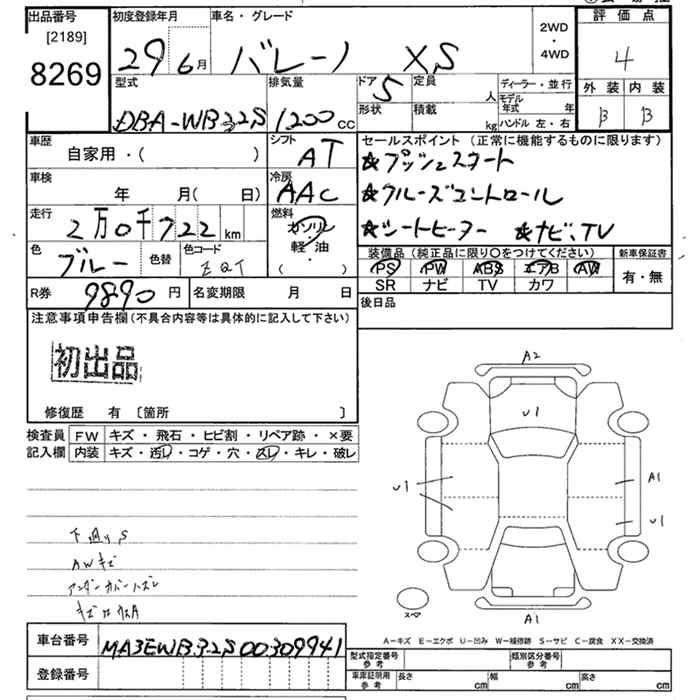 出品番号
[2189]
8269
初度登録年月
29 6月
車名・グレード
バレーノ XS
2WD
・
4WD
評価点
4
外装 内装
B B
型式
DBA-WB32S
排気量
1200cc
ドア
5
形状
定員
人
積載
kg
ディーラー・並行
モデル年式 年
ハンドル 左・右
車歴
自家用・( )
シフト
AT
車検
年 月( 日)
冷房
AAC
走行
2万0千722km
燃料
ガソリン
軽・油
( )
色
ブルー
色替
色コード
ZQT
R券
9890円
名変期限 月 日
セールスポイント(正常に機能するものに限ります)
★プッシュスタート
★クルーズコントロール
★シートヒーター ★ナビ、TV
装備品(純正品に限り〇をつけてください)
PS PW ABS エアB AW
SR ナビ TV カワ
新車保証書
有・無
後日品
注意事項申告欄(不具合内容等は具体的に記入して下さい)
初出品
修復歴 有 〔箇所 〕
検査員
記入欄
FW キズ・飛石・ヒビ割・リペア跡・×要
内装 キズ・汚レ・コゲ・穴・スレ・キレ・破レ
下廻りS
AWキズ
アンダーカバーハズレ
A2
U1
U1
A1
U1
スペア
A1
A-キズ E-エクボ U-凹み W-補修跡 S-サビ C-腐食 XX-交換済
車台番号
MA3EWB32S00309941
登録番号
型式指定番号
参考
類別区分番号
参考
車庫証明用
参考
長さ cm
幅 cm
高さ cm